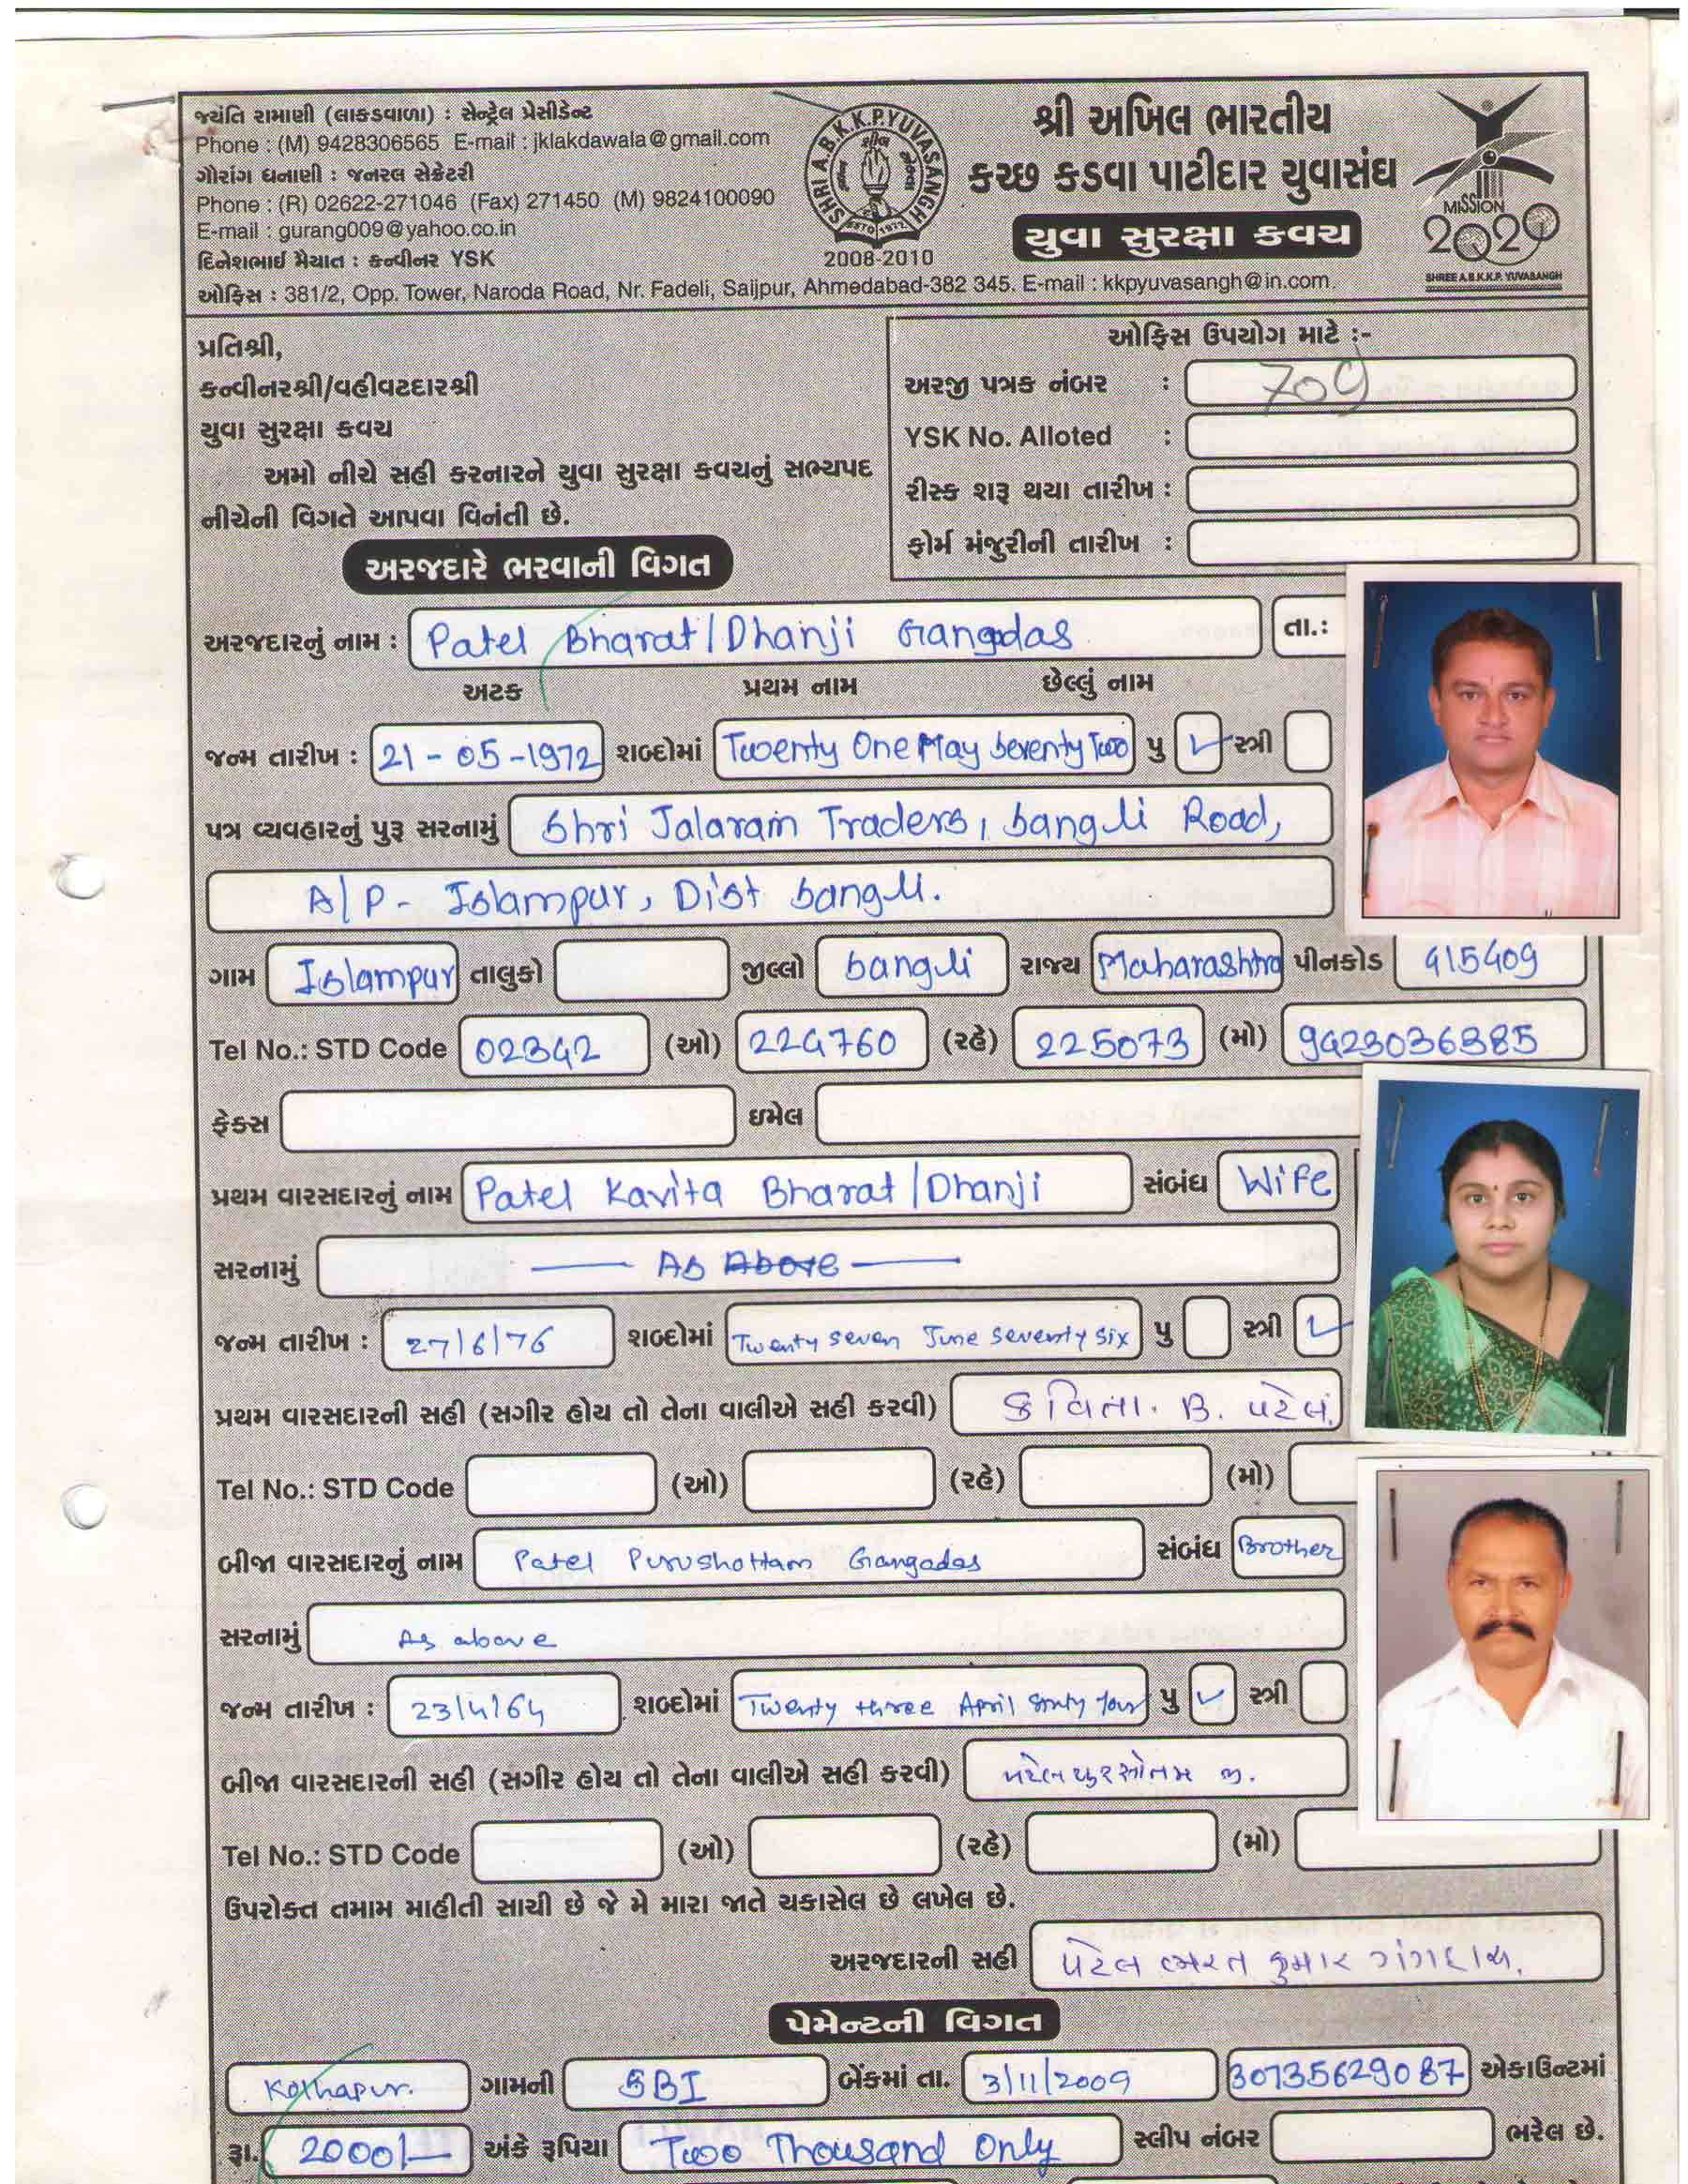 જયંતિ રામાણી (લાકડાવાળા) : સેન્ટ્રેલ પ્રેસીડેન્ટ
Phone : (M) 9428306565 E-mail : jklakdawala@gmail.com
ગૌરાંગ ધનાણી : જનરલ સેક્રેટરી
Phone : (R) 02622-271046 (Fax) 271450 (M) 9824100090
E-mail : gurang009@yahoo.co.in
દિનેશભાઈ મૈયાત : કન્વીનર YSK
SHRI A.B.K.K.P. YUVASANGH
ESTD 1972
2008-2010
શ્રી અખિલ ભારતીય
કચ્છ કડવા પાટીદાર યુવાસંઘ
યુવા સુરક્ષા કવચ
MISSION
2020
SHREE A.B.K.K.P. YUVASANGH
ઓફિસ : 381/2, Opp. Tower, Naroda Road, Nr. Fadeli, Saijpur, Ahmedabad-382 345. E-mail : kkpyuvasangh@in.com.
પ્રતિશ્રી,
કન્વીનરશ્રી/વહીવટદારશ્રી
યુવા સુરક્ષા કવચ
અમો નીચે સહી કરનારને યુવા સુરક્ષા કવચનું સભ્યપદ
નીચેની વિગતે આપવા વિનંતી છે.
ઓફિસ ઉપયોગ માટે :-
અરજી પત્રક નંબર : 709
YSK No. Alloted :
રીસ્ક શરૂ થયા તારીખ :
ફોર્મ મંજુરીની તારીખ :
અરજદારે ભરવાની વિગત
અરજદારનું નામ : Patel Bharat/Dhanji Gangadas તા.:
અટક પ્રથમ નામ છેલ્લું નામ
જન્મ તારીખ : 21-05-1972 શબ્દોમાં Twenty One May Seventy Two પુ ✓ સ્ત્રી
પત્ર વ્યવહારનું પુરૂ સરનામું Shri Jalaram Traders, Sangli Road,
A/P- Islampur, Dist Sangli.
ગામ Islampur તાલુકો જીલ્લો Sangli રાજ્ય Maharashtra પીનકોડ 415409
Tel No.: STD Code 02342 (ઓ) 224760 (રહે) 225073 (મો) 9423036385
ફેક્સ ઇમેલ
પ્રથમ વારસદારનું નામ Patel Kavita Bharat/Dhanji સંબંધ Wife
સરનામું — As Above —
જન્મ તારીખ : 27/6/76 શબ્દોમાં Twenty seven June seventy six પુ સ્ત્રી ✓
પ્રથમ વારસદારની સહી (સગીર હોય તો તેના વાલીએ સહી કરવી) કવિતા. B. પટેલ.
Tel No.: STD Code (ઓ) (રહે) (મો)
બીજા વારસદારનું નામ Patel Purushottam Gangadas સંબંધ Brother
સરનામું As above
જન્મ તારીખ : 23/4/64 શબ્દોમાં Twenty three April Sixty four પુ ✓ સ્ત્રી
બીજા વારસદારની સહી (સગીર હોય તો તેના વાલીએ સહી કરવી) પટેલ પુરસોતમ
Tel No.: STD Code (ઓ) (રહે) (મો)
ઉપરોક્ત તમામ માહીતી સાચી છે જે મે મારા જાતે ચકાસેલ છે લખેલ છે.
અરજદારની સહી પટેલ ભરત કુમાર ગંગદાસ.
પેમેન્ટની વિગત
Kolhapur. ગામની SBI બેંકમાં તા. 3/11/2009 30735629087 એકાઉન્ટમાં
રૂા. 2000/- અંકે રૂપિયા Two Thousand Only સ્લીપ નંબર ભરેલ છે.